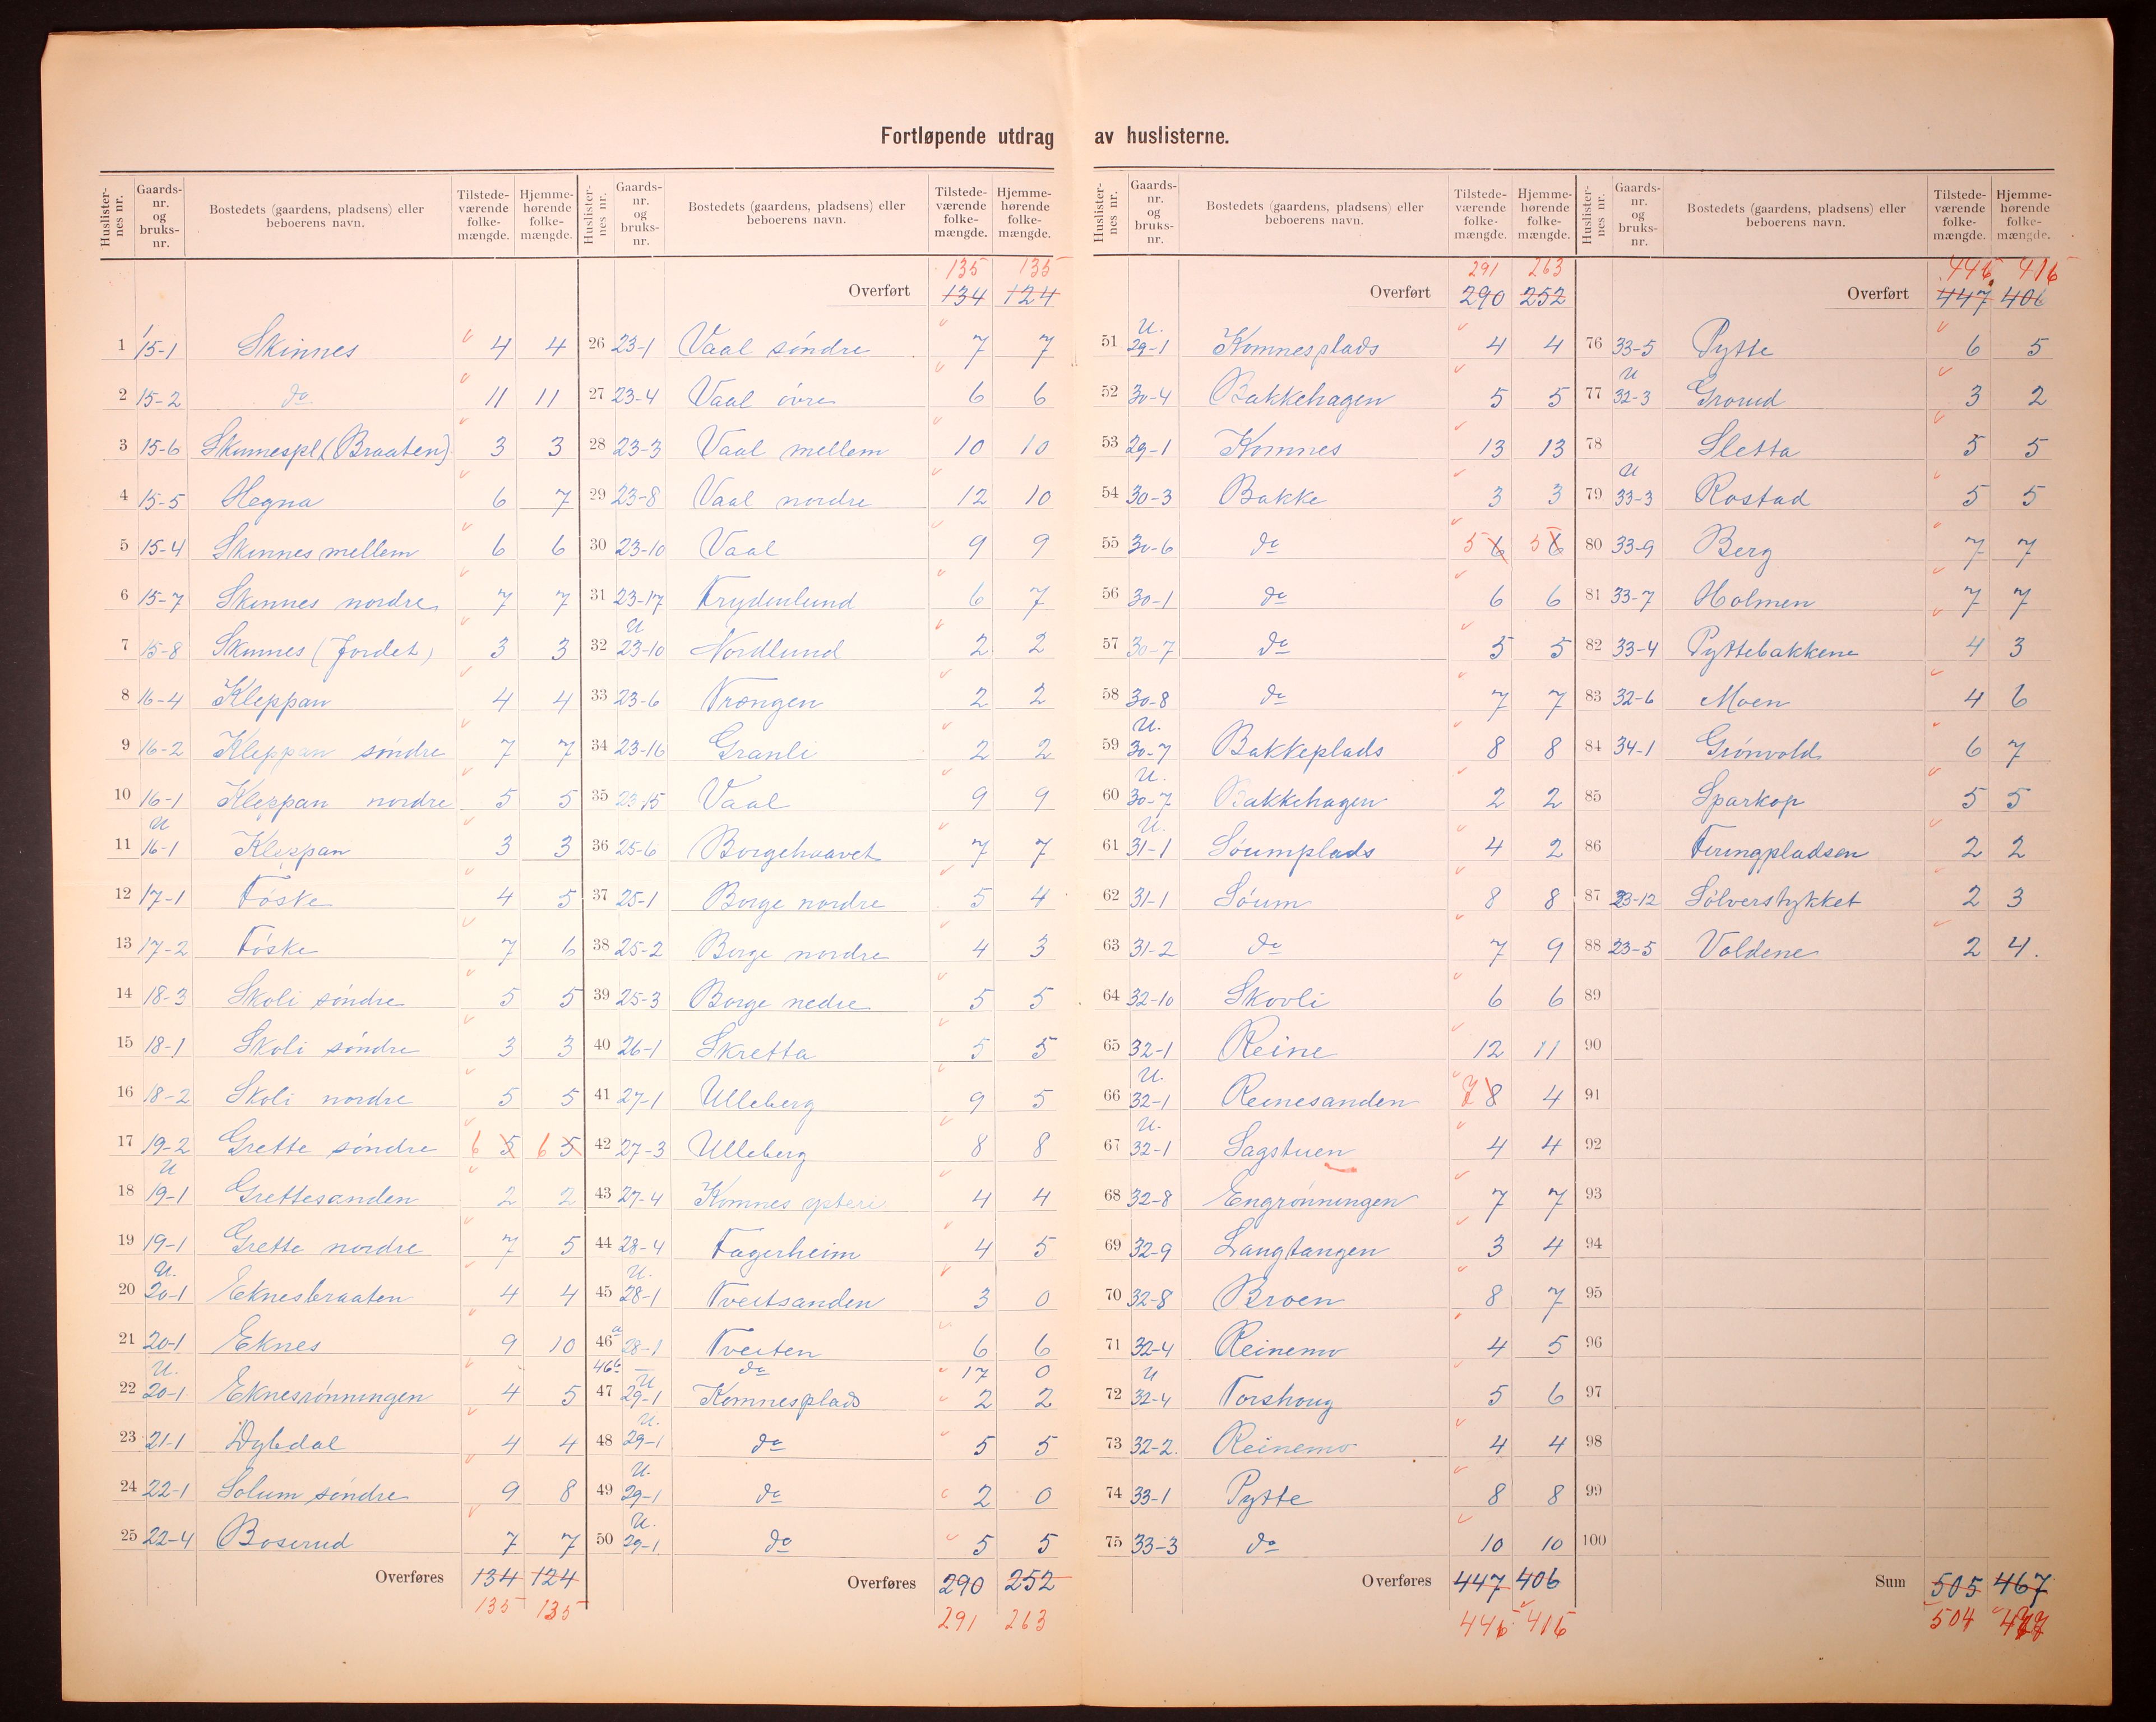 Fortløpende utdrag av huslisterne.
Huslister-nes nr. Gaards-nr. og bruks-nr. Bostedets (gaardens, pladsens) eller beboerens navn. Tilstede-værende folke-mængde. Hjemme-hørende folke-mængde.
1 15-1 Skinnes 4 4
2 15-2 do 11 11
3 15-6 Skinnespl (Braaten) 3 3
4 15-5 Hegna 6 7
5 15-4 Skinnes mellem 6 6
6 15-7 Skinnes nordre 7 7
7 15-8 Skinnes (Jordet) 3 3
8 16-4 Kleppan 4 4
9 16-2 Kleppan søndre 7 7
10 16-1 Kleppan nordre 5 5
11 U 16-1 Kleppan 3 3
12 17-1 Føske 4 5
13 17-2 Føske 7 6
14 18-3 Skoli søndre 5 5
15 18-1 Skoli søndre 3 3
16 18-2 Skoli nordre 5 5
17 19-2 Grette søndre 6 5 6 5
18 U 19-1 Grettesanden 2 2
19 19-1 Grette nordre 7 5
20 U. 20-1 Eknesbraaten 4 4
21 20-1 Eknes 9 10
22 U. 20-1 Eknesrønningen 4 5
23 21-1 Dybdal 4 4
24 22-1 Solum søndre 9 8
25 22-4 Boserud 7 7
Overføres 134 124
135 135
Huslister-nes nr. Gaards-nr. og bruks-nr. Bostedets (gaardens, pladsens) eller beboerens navn. Tilstede-værende folke-mængde. Hjemme-hørende folke-mængde.
135 135
Overført 134 124
26 23-1 Vaal søndre 7 7
27 23-4 Vaal øvre 6 6
28 23-3 Vaal mellem 10 10
29 23-8 Vaal nordre 12 10
30 23-10 Vaal 9 9
31 23-17 Frydenlund 6 7
32 U 23-10 Nordlund 2 2
33 23-6 Trongen 2 2
34 23-16 Granli 2 2
35 23 15 Vaal 9 9
36 25-6 Borgehaavet 7 7
37 25-1 Borge nordre 5 4
38 25-2 Borge nordre 4 3
39 25-3 Borge nedre 5 5
40 26-1 Skretta 5 5
41 27-1 Ulleberg 9 5
42 27-3 Ulleberg 8 8
43 27-4 Komnes ysteri 4 4
44 28-4 Fagerheim 4 5
45 U. 28-1 Tveitsanden 3 0
46 a 28-1 Tveiten 6 6
46 b — do 17 0
47 U 29-1 Komnesplads 2 2
48 U. 29-1 do 5 5
49 U. 29-1 do 2 0
50 U. 29-1 do 5 5
Overføres 290 252
291 263
Huslister-nes nr. Gaards-nr. og bruks-nr. Bostedets (gaardens, pladsens) eller beboerens navn. Tilstede-værende folke-mængde. Hjemme-hørende folke-mængde.
291 263
Overført 290 252
51 U. 29-1 Komnesplads 4 4
52 30-4 Bakkehagen 5 5
53 29-1 Komnes 13 13
54 30-3 Bakke 3 3
55 30-6 do 5 6 5 6
56 30-1 do 6 6
57 30-7 do 5 5
58 30-8 do 7 7
59 U. 30-7 Bakkeplads 8 8
60 U. 30-7 Bakkehagen 2 2
61 U. 31-1 Søumplads 4 2
62 31-1 Søum 8 8
63 31-2 do 7 9
64 32-10 Skovli 6 6
65 32-1 Reine 12 11
66 U. 32-1 Reinesanden 7 8 4
67 U. 32-1 Sagstuen 4 4
68 32-8 Engrønningen 7 7
69 32-9 Langtangen 3 4
70 32-8 Broen 8 7
71 32-4 Reinemo 4 5
72 U 32-4 Torshoug 5 6
73 32-2. Reinemo 4 4
74 33-1 Pytte 8 8
75 33-3 do 10 10
Overføres 447 406
446 416
Huslister-nes nr. Gaards-nr. og bruks-nr. Bostedets (gaardens, pladsens) eller beboerens navn. Tilstede-værende folke-mængde. Hjemme-hørende folke-mængde.
446 416
Overført 447 406
76 33-5 Pytte 6 5
77 U 32-3 Grorud 3 2
78 Sletta 5 5
79 U 33-3 Rostad 5 5
80 33-9 Berg 7 7
81 33-7 Holmen 7 7
82 33-4 Pyttebakkene 4 3
83 32-6 Moen 4 6
84 34-1 Grønvold 6 7
85 Sparkop 5 5
86 Firingpladsen 2 2
87 23-12 Sølverstykket 2 3
88 23-5 Voldene 2 4.
89
90
91
92
93
94
95
96
97
98
99
100
Sum 505 467
504 477